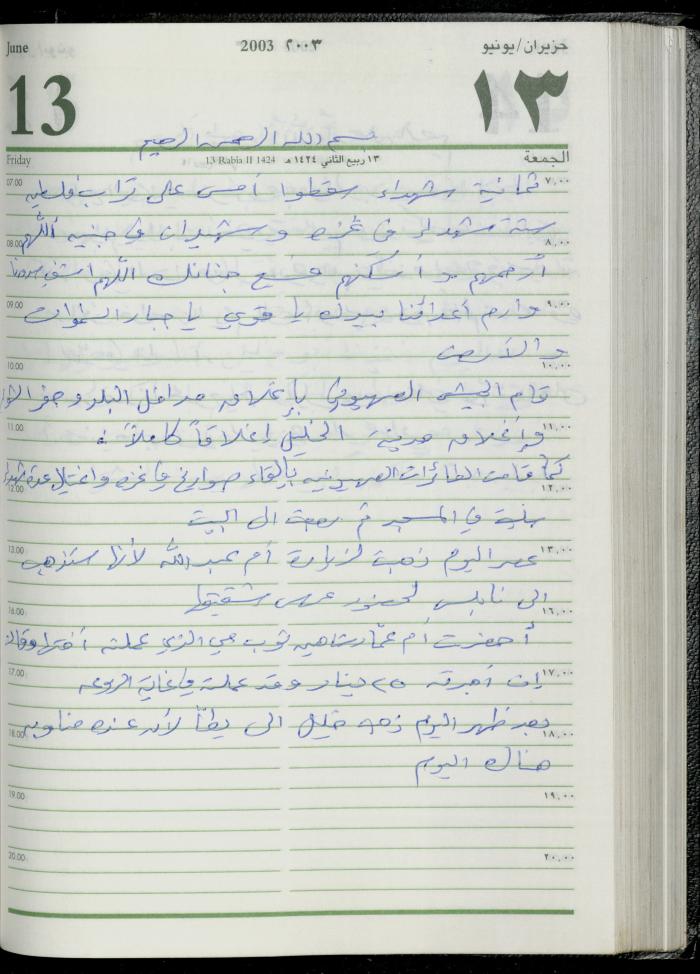 June
2003 ٢٠٠٣
حزيران/يونيو
13
١٣
بسم الله الرحمن الرحيم
Friday
13 Rabia II 1424
١٣ ربيع الثاني ١٤٢٤ هـ
الجمعة
07.00 ٧,٠٠
ثمانية شهداء سقطوا أمس على تراب فلسطين
ستة شهداء في غزة وشهيدان في جنين اللهم
08.00 ٨,٠٠
أرحمهم وأسكنهم فسيح جنانك اللهم اشف
09.00 ٩,٠٠
وارم أعدائنا بيدك يا قوي يا جبار السموات
والأرض
10.00 ١٠,٠٠
قام الجيش الصهيوني بإغلاق مداخل البلد وحفر
11.00 ١١,٠٠
وإغلاق مدينة الخليل إغلاقاً كاملاً
كما قامت الطائرات الصهيونية بإلقاء صواريخ في غزة واغتيال عدة
12.00 ١٢,٠٠
في المسجد ثم رجعت الى البيت
13.00 ١٣,٠٠
عصر اليوم ذهبت لزيارة أم عبد الله لأنها ستذهب
الى نابلس لحضور عرس شقيقها
16.00 ١٦,٠٠
أحضرت أم عمار شاهين ثوب مي الذي عملته
17.00 ١٧,٠٠
إن أجرته ٢٥ دينار وقد عملته في غاية الروعة
بعد ظهر اليوم ذهب خليل الى يطا لأن عنده مناوبة
18.00 ١٨,٠٠
هناك اليوم
19.00 ١٩,٠٠
20.00 ٢٠,٠٠